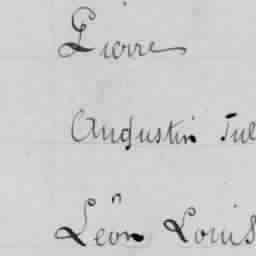 Pierre
Augustin Jul
Léon Louis